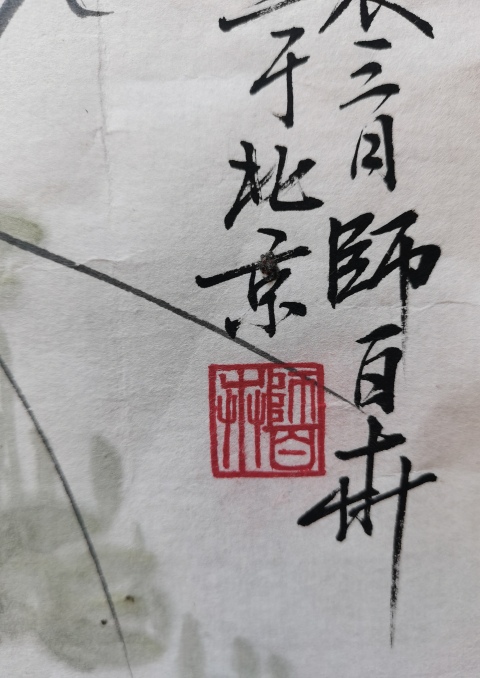 三月師百卉
于北京
師百卉